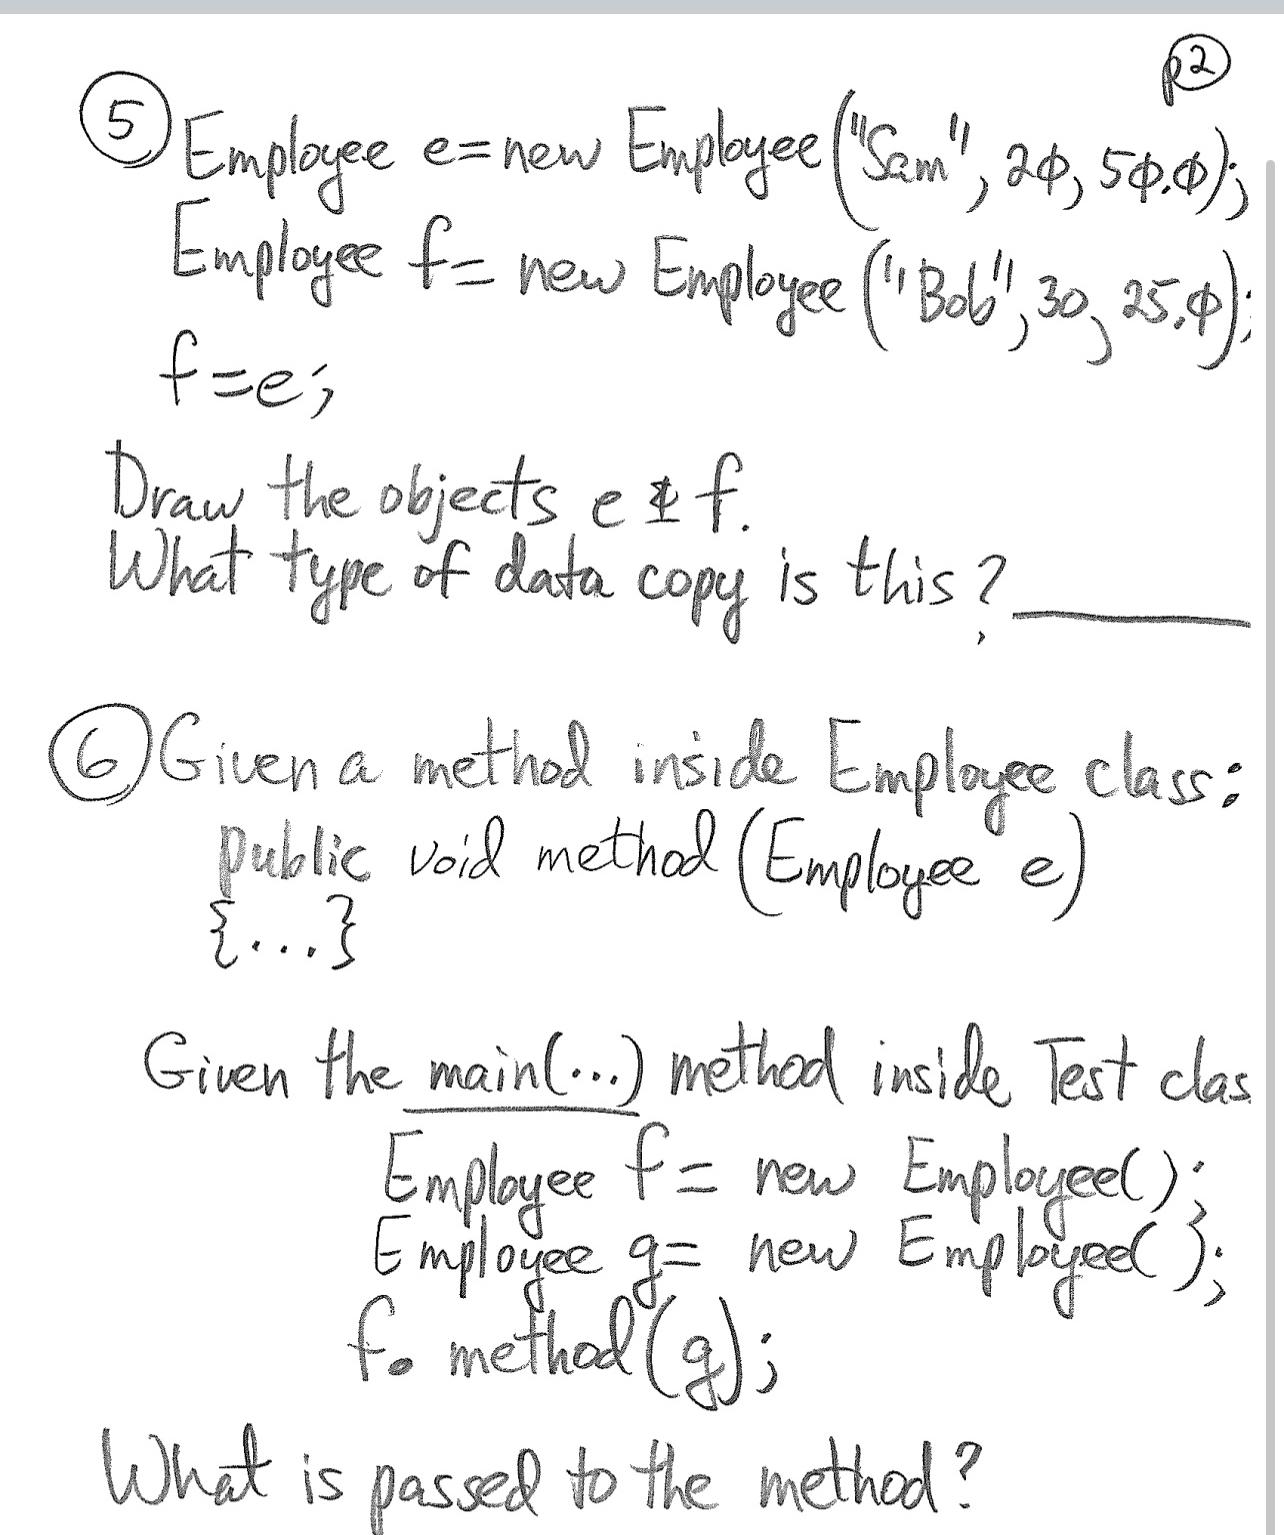 p2
⑤ Employee e=new Employee("Sam", 20, 50.0);
Employee f= new Employee("Bob", 30, 25.0);
f=e;
Draw the objects e & f.
What type of data copy is this? ______
⑥ Given a method inside Employee class:
public void method (Employee e)
{...}
Given the main(...) method inside Test clas
Employee f= new Employee();
Employee g= new Employee();
f. method(g);
What is passed to the method?